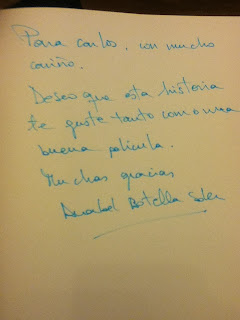 Para Carlos, con mucho
cariño.
Deseo que esta historia
te guste tanto como una
buena película.
Muchas gracias
Anabel Botella Soler